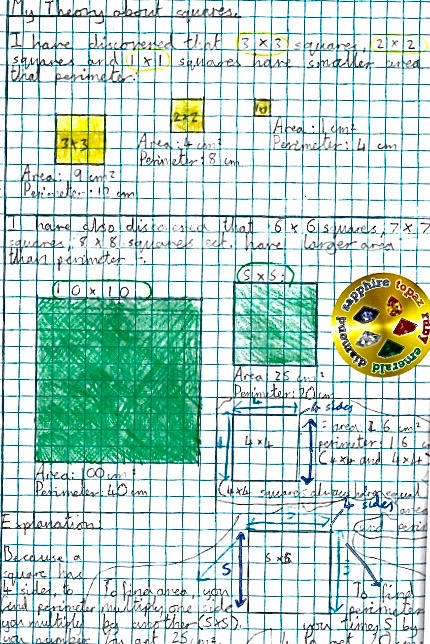 My Theory about squares.
I have discovered that 3 x 3 squares, 2 x 2
squares and 1 x 1 squares have smaller area
than perimeter:
3x3
2x2
1x1
Area: 9 cm²
Perimeter: 12 cm
Area: 4 cm²
Perimeter: 8 cm
Area: 1 cm²
Perimeter: 4 cm
I have also discovered that 6 x 6 squares, 7 x 7
squares, 8 x 8 squares ect. have larger area
than perimeter :.
10 x 10
5 x 5:
diamond sapphire topaz ruby emerald
Area: 100cm²
Perimeter: 40cm
Area: 25 cm²
Perimeter: 20cm
4
4 sides
4
4 x 4
= area 16 cm²
perimeter: 16 cm
(4x4 and 4x4)
(4x4 squares always have equal
area
and
Explanation:
4 sides
5
5 x 5
Because a
square has
4 sides, to
find perimeter
you multiply
To find area, you
multiply one side
by another (5x5).
You get 25 cm².
To find
perimeter
you times 5 by